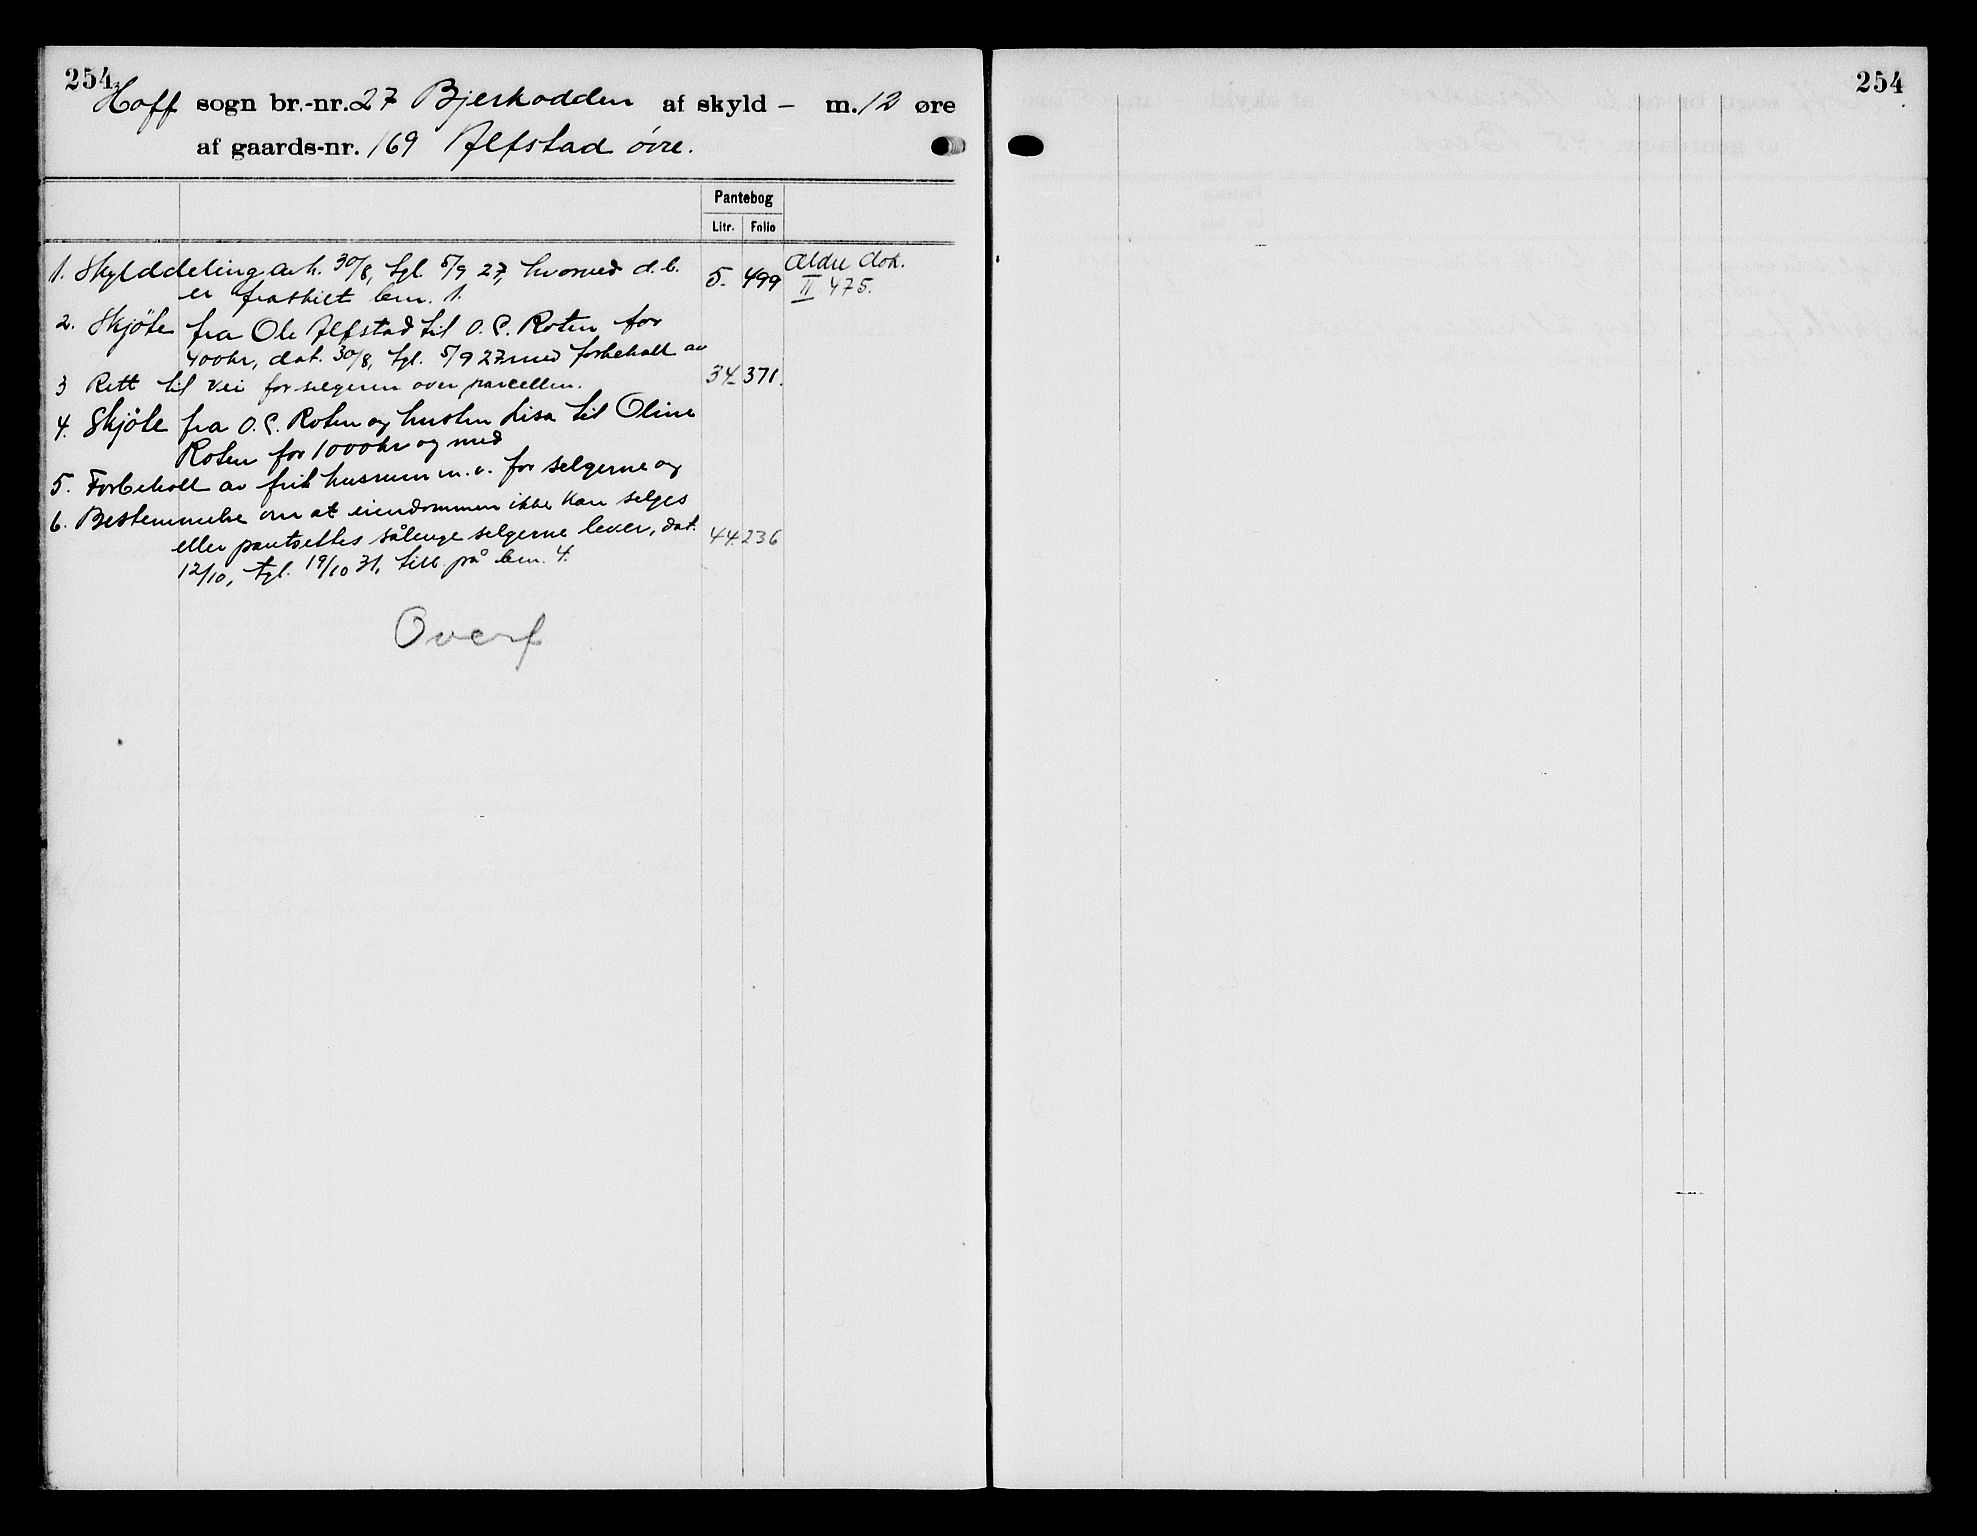 254
Hoff sogn br.-nr. 27 Bjerkodden af skyld – m. 12 øre
af gaards-nr. 169 Alfstad øvre.
Pantebog
Litr. Folio
1. Skylddeling avh. 30/8, tgl. 5/9 27, hvorved d. b. 5. 499 Ældre dok.
er fraskilt bnr. 1. II 475.
2. Skjöte fra Ole Alfstad til O. C. Roten for
400 kr, dat. 30/8, tgl. 5/9 27 med forbehold av
3 Rett til vei for selgeren over parcellen. 34. 371.
4. Skjöte fra O. C. Roten og hustru Lisa til Oline
Roten for 1000 kr og med
5. Forbehold av frit husrum m. v. for selgerne og
6. Bestemmelse om at eiendommen ikke kan selges
eller pantsettes sålenge selgerne lever, dat. 44. 236
12/10, tgl. 19/10 31, på bnr. 4.
Overf
254